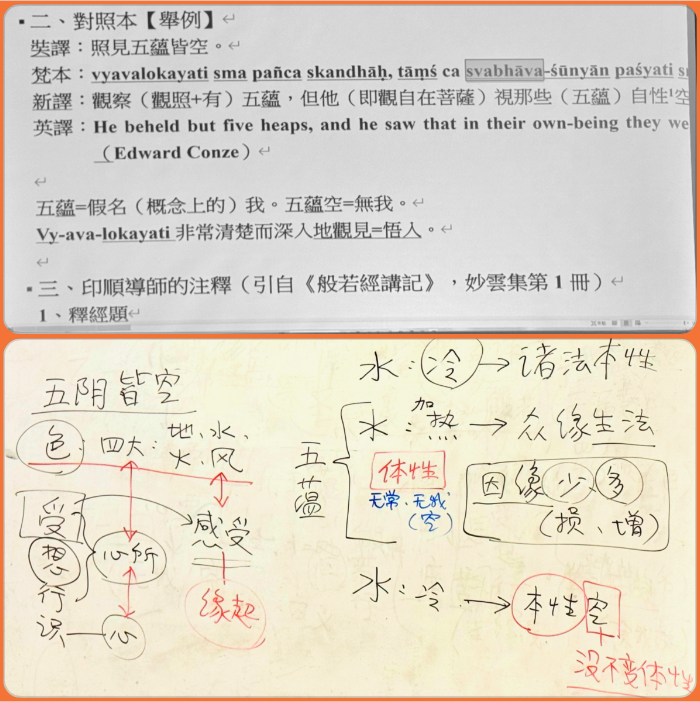 ▪二、對照本【舉例】↵
奘譯：照見五蘊皆空。↵
梵本：vyavalokayati sma pañca skandhāḥ, tāṃś ca svabhāva-śūnyān paśyati
新譯：觀察（觀照+有）五蘊，但他（即觀自在菩薩）視那些（五蘊）自性¹空
英譯：He beheld but five heaps, and he saw that in their own-being they we
（Edward Conze）↵
↵
五蘊=假名（概念上的）我。五蘊空=無我。↵
Vy-ava-lokayati 非常清楚而深入地觀見=悟入。↵
↵
▪三、印順導師的注釋（引自《般若經講記》，妙雲集第 1 冊）↵
1、釋經題↵
五阴皆空
色：四大：地、水、
火、风
受
想
行
识
心所
心
感受
缘起
水：冷→诸法本性
五蕴
水：加热→众缘生法
体性
无常、无我
（空）
因缘少、多
（损、增）
水：冷→本性空
没不变体性